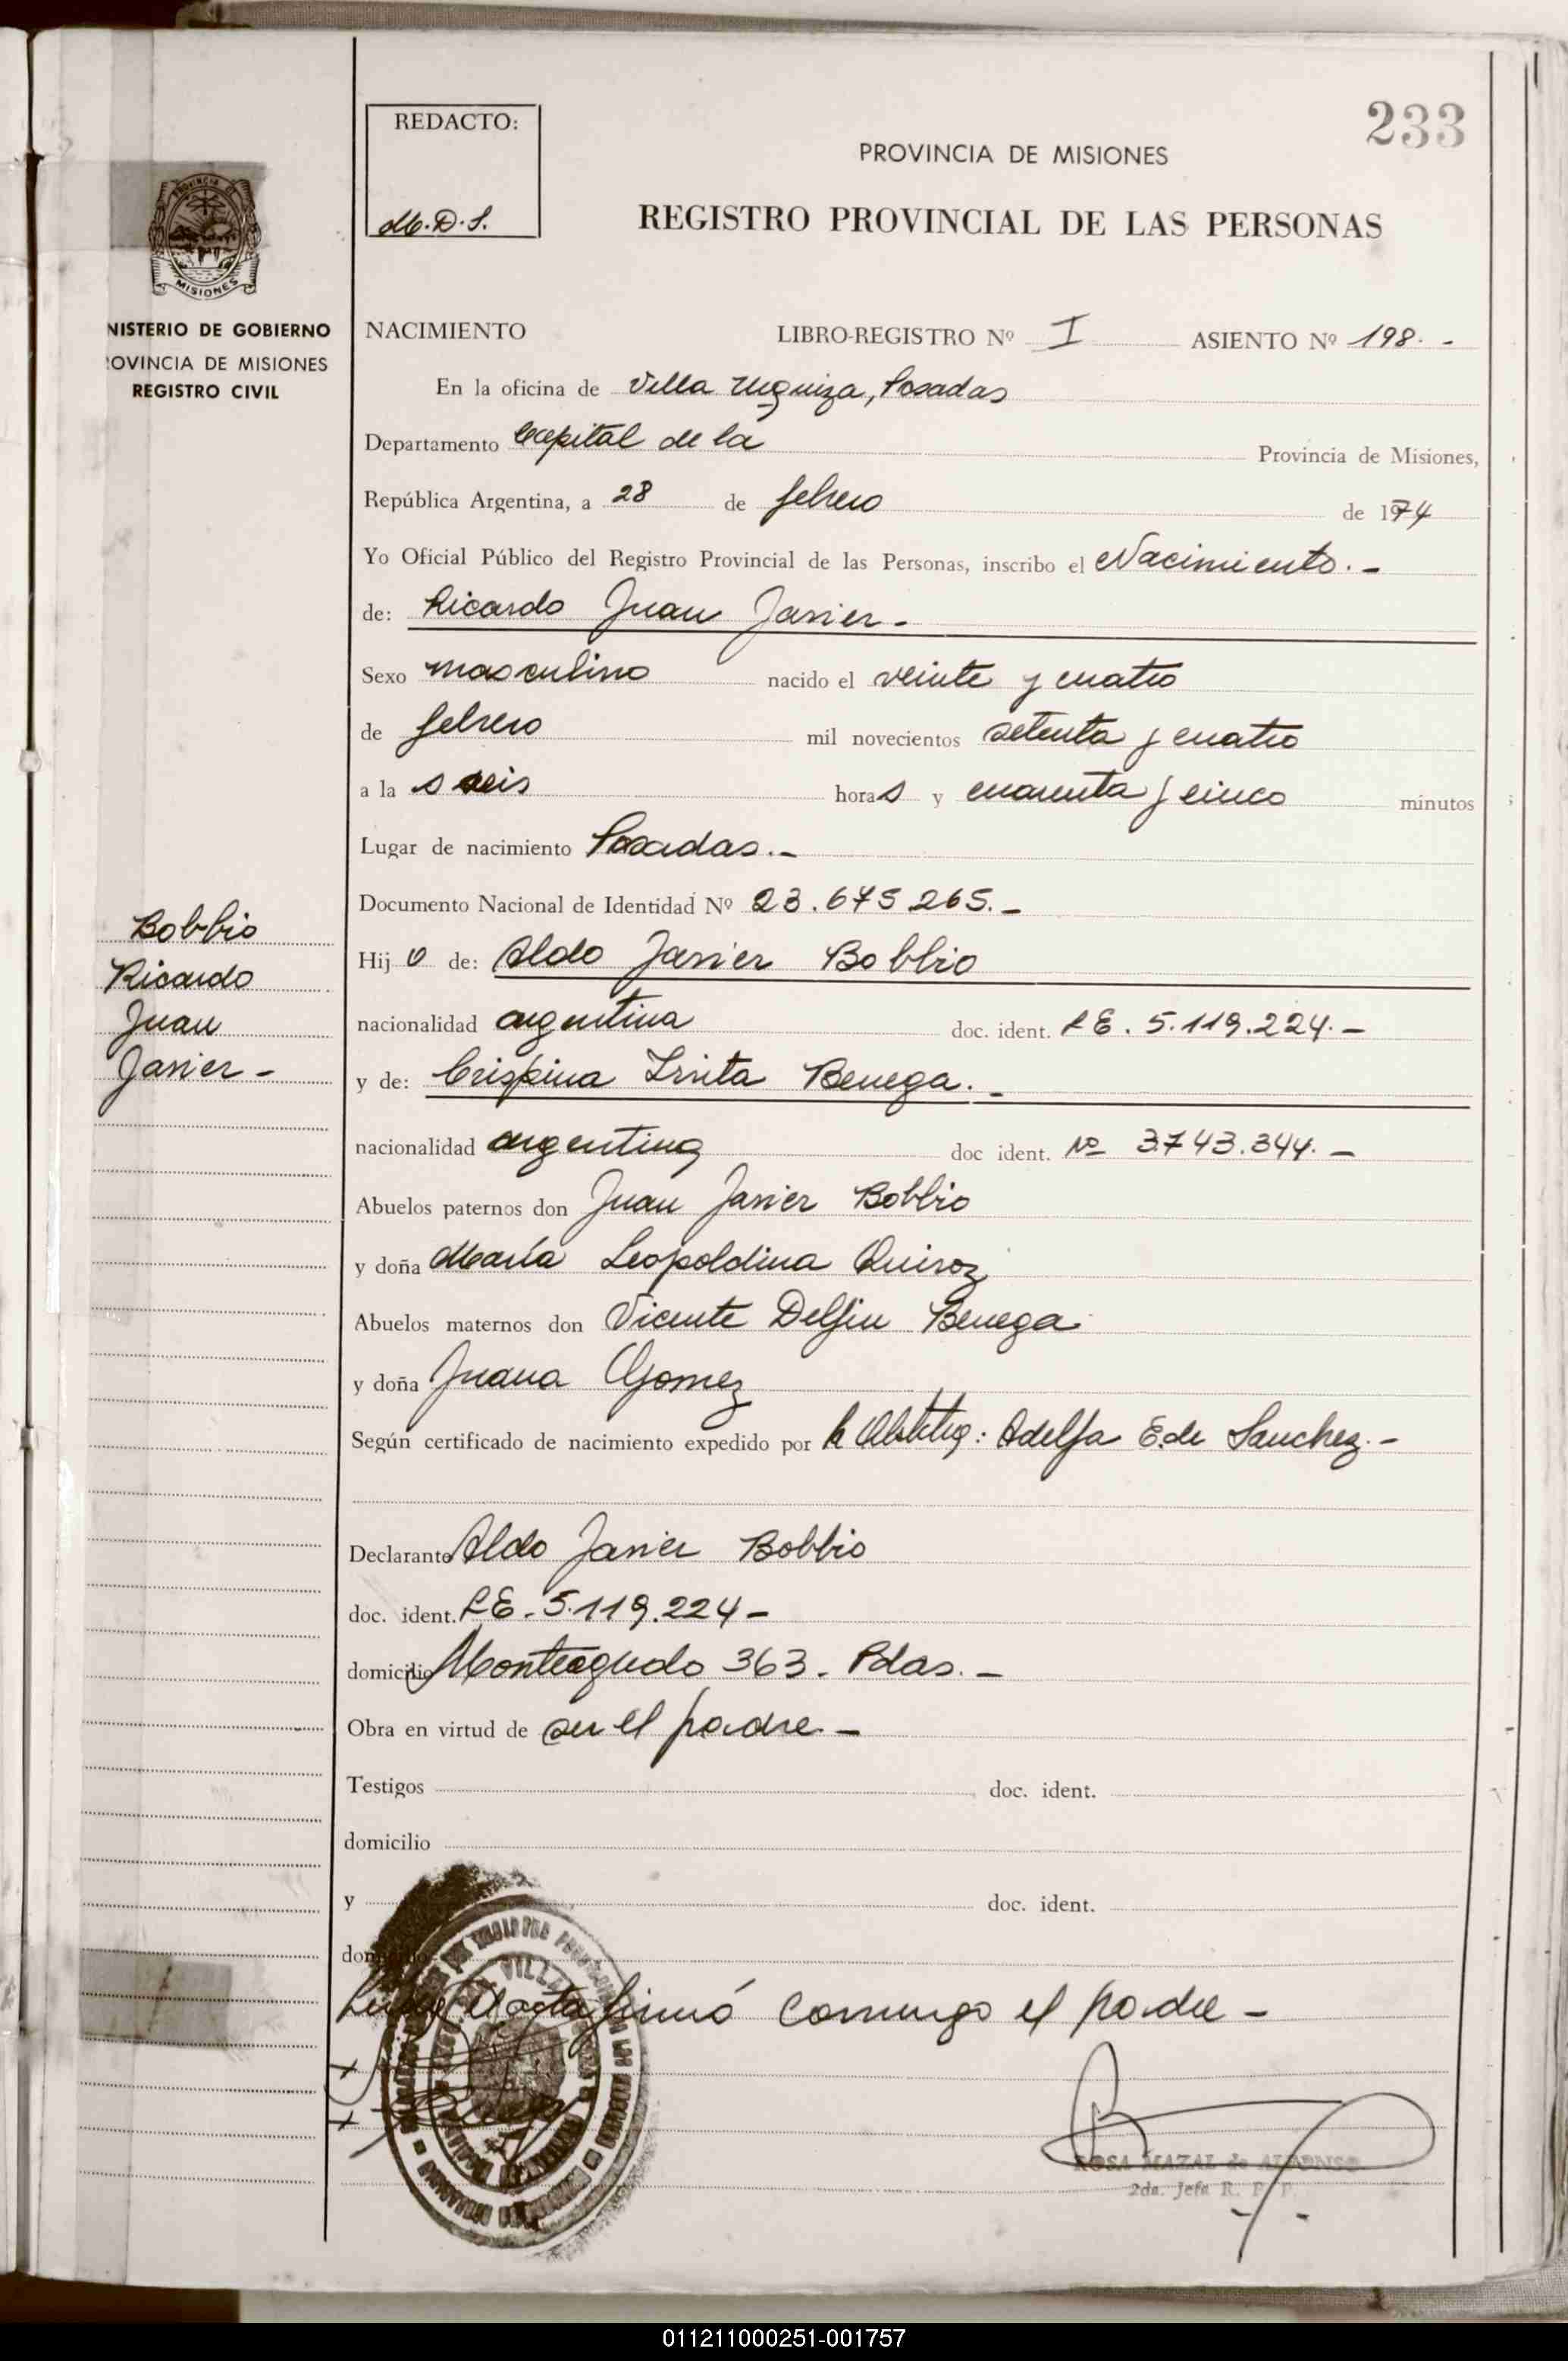 233
REDACTO:
M.D.S.
PROVINCIA DE MISIONES
REGISTRO PROVINCIAL DE LAS PERSONAS
MISIONES
NISTERIO DE GOBIERNO
OVINCIA DE MISIONES
REGISTRO CIVIL
NACIMIENTO LIBRO-REGISTRO Nº I ASIENTO Nº 198.-
En la oficina de Villa Urquiza, Posadas
Departamento Capital de la Provincia de Misiones,
República Argentina, a 28 de febrero de 1974
Yo Oficial Público del Registro Provincial de las Personas, inscribo el Nacimiento.-
de: Ricardo Juan Javier-
Sexo masculino nacido el veinte y cuatro
de febrero mil novecientos setenta y cuatro
a la s seis horas y cuarenta y cinco minutos
Lugar de nacimiento Posadas.-
Documento Nacional de Identidad Nº 23.675.265.-
Bobbio
Ricardo
Juan
Javier-
Hijo de: Aldo Javier Bobbio
nacionalidad argentina doc. ident. LE. 5.119.224.-
y de: Crispina Benega.-
nacionalidad argentina doc ident. Nº 3743.344.-
Abuelos paternos don Juan Javier Bobbio
y doña María Leopoldina Quiroz
Abuelos maternos don Vicente Delfin Benega
y doña Juana Gomez
Según certificado de nacimiento expedido por la Adelfa E. de Sanchez.-
Declarante Aldo Javier Bobbio
doc. ident. LE-5.119.224-
domicilio Monteagudo 363. Pdas.-
Obra en virtud de ser el padre-
Testigos doc. ident.
domicilio
y doc. ident.
domicilio
VILLA
Leída el acta firmó conmigo el padre-
ROSA MAZAL de
2da. Jefa R. P. P.
011211000251-001757